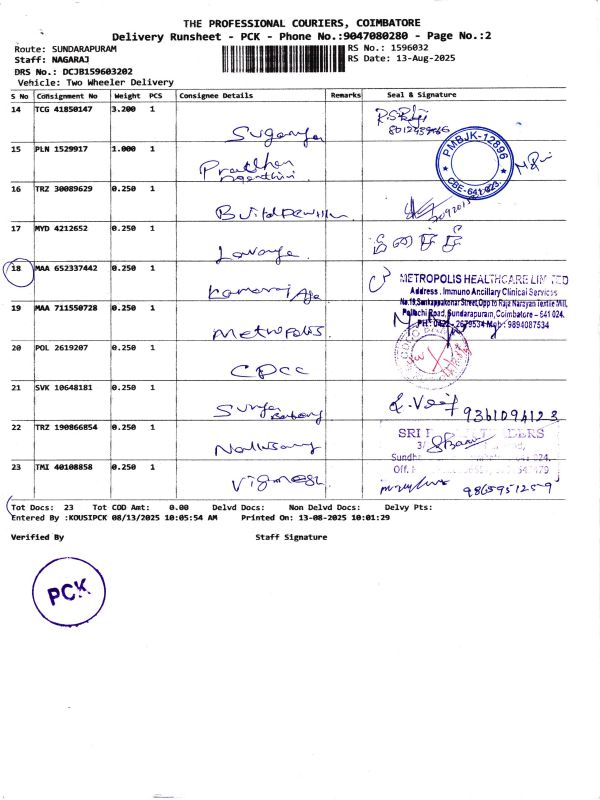 THE PROFESSIONAL COURIERS, COIMBATORE
Delivery Runsheet - PCK - Phone No.:9047080280 - Page No.:2
Route: SUNDARAPURAM
RS No.: 1596032
Staff: NAGARAJ
RS Date: 13-Aug-2025
DRS No.: DCJB159603202
Vehicle: Two Wheeler Delivery
S No Consignment No Weight PCS Consignee Details Remarks Seal & Signature
14 TCG 41850147 3.200 1
Suganya
15 PLN 1529917 1.000 1
PMBJK-12896
CBE-641 023.
16 TRZ 30089629 0.250 1
17 MYD 4212652 0.250 1
Lavanya
18 MAA 652337442 0.250 1
Kamaraj
METROPOLIS HEALTHCARE LIMITED
Address : Immuno Ancillary Clinical Services
No.19,Sankappakonar Street,Opp to Raja Narayan Textile Mill,
Pollachi Road, Sundarapuram, Coimbatore – 641 024.
PH: 0422 - 2679534 Mob : 9894087534
19 MAA 711550728 0.250 1
Metropolis
20 POL 2619207 0.250 1
CPCC
21 SVK 10648181 0.250 1
Surya
9361094123
22 TRZ 190866854 0.250 1
Nallusamy
SRI
23 TMI 40108858 0.250 1
Vignesh
9865951259
Tot Docs: 23 Tot COD Amt: 0.00 Delvd Docs: Non Delvd Docs: Delvy Pts:
Entered By :KOUSIPCK 08/13/2025 10:05:54 AM Printed On: 13-08-2025 10:01:29
Verified By Staff Signature
PCK